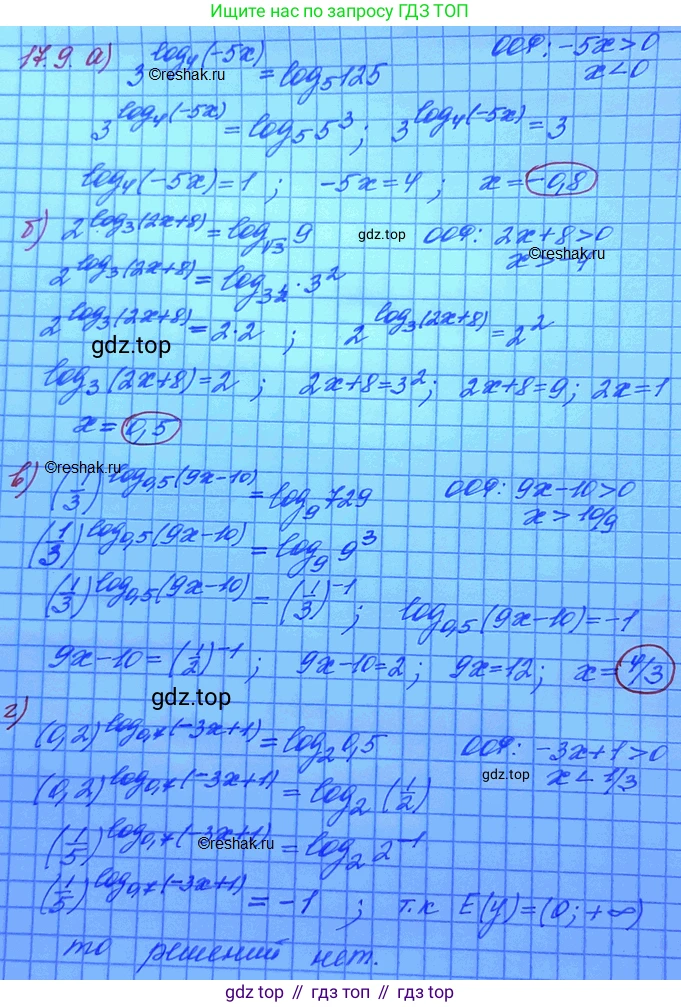 Ищите нас по запросу ГДЗ ТОП
17.9. а) 3^log₄(-5x) = log₅125 ООФ: -5x>0
©reshak.ru x<0
3^log₄(-5x) = log₅5³; 3^log₄(-5x) = 3
log₄(-5x)=1 ; -5x=4 ; x=-0,8
б) 2^log₃(2x+8) = log_√3 9 gdz.top ООФ: 2x+8>0
x>-4
2^log₃(2x+8) = log_3^½ · 3²
2^log₃(2x+8) = 2·2 ; 2^log₃(2x+8) = 2²
gdz.top
log₃(2x+8)=2 ; 2x+8=3²; 2x+8=9; 2x=1
x=0,5
©reshak.ru
в) (1/3)^log₀,₅(9x-10) = log₉729 ООФ: 9x-10>0
x>10/9
(1/3)^log₀,₅(9x-10) = log₉9³
(1/3)^log₀,₅(9x-10) = (1/3)⁻¹ ; log₀,₅(9x-10)=-1
9x-10=(1/2)⁻¹ ; 9x-10=2; 9x=12; x=4/3
gdz.top
г) (0,2)^log₀,₇(-3x+1) = log₂0,5 ООФ: -3x+1>0
gdz.top x<1/3
(0,2)^log₀,₇(-3x+1) = log₂(1/2)
(1/5)^log₀,₇(-3x+1) = log₂2⁻¹
©reshak.ru
(1/5)^log₀,₇(-3x+1) = -1 ; т.к E(y)=(0;+∞)
то решений нет.
gdz.top // гдз топ // gdz.top